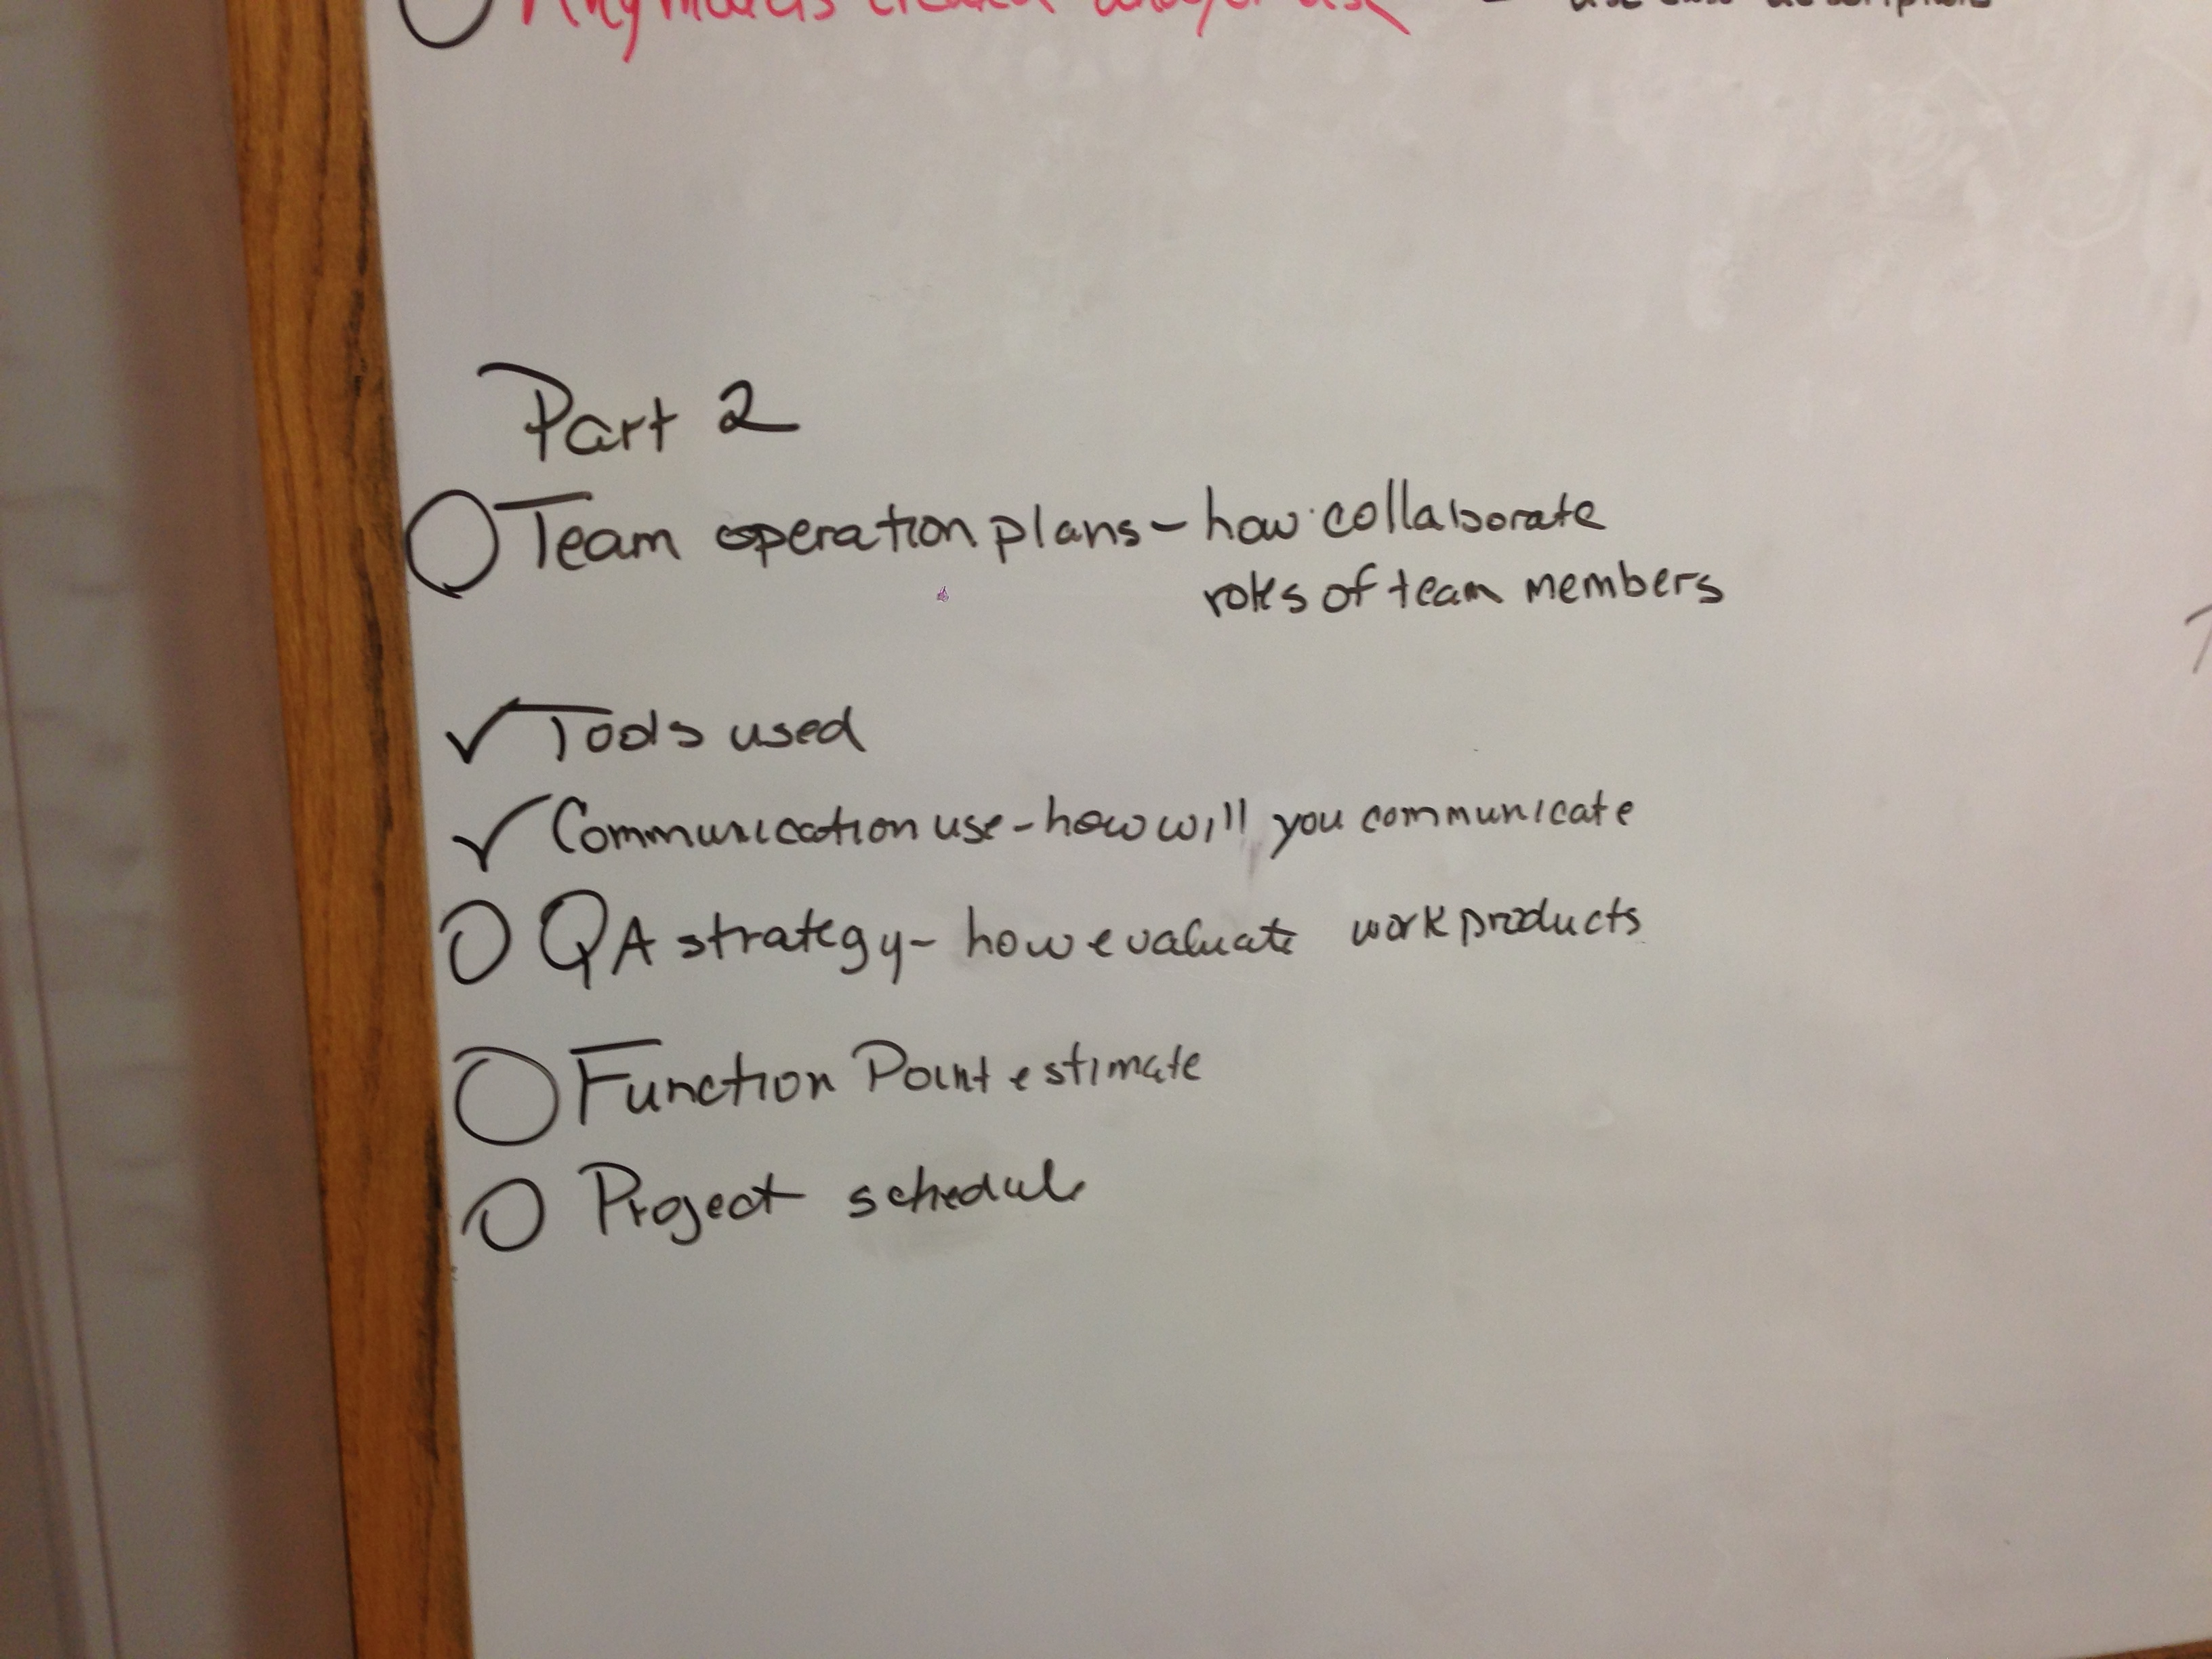 Part 2
Team operation plans - how collaborate
roles of team members
✓ Tools used
✓ Communication use - how will you communicate
QA strategy - how evaluate work products
Function Point estimate
Project schedule